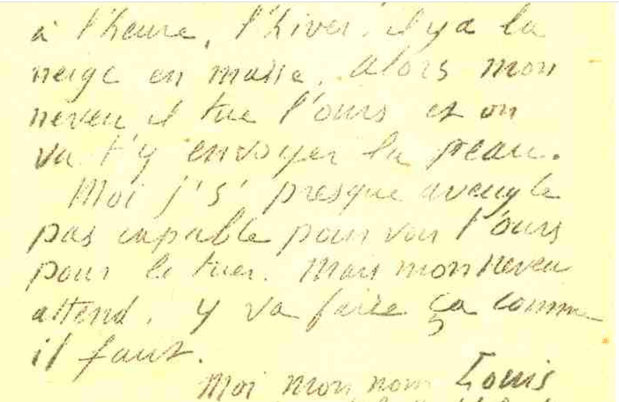 à l'heure, l'hiver. il y a la
neige en masse. alors mon
neveu il tue l'ours et on
va t'y envoyer la peau.
Moi j's' presque aveugle
pas capable pour voir l'ours
pour le tuer. Mais mon neveu
attend. y va faire ça comme
il faut.
Moi mon nom Louis